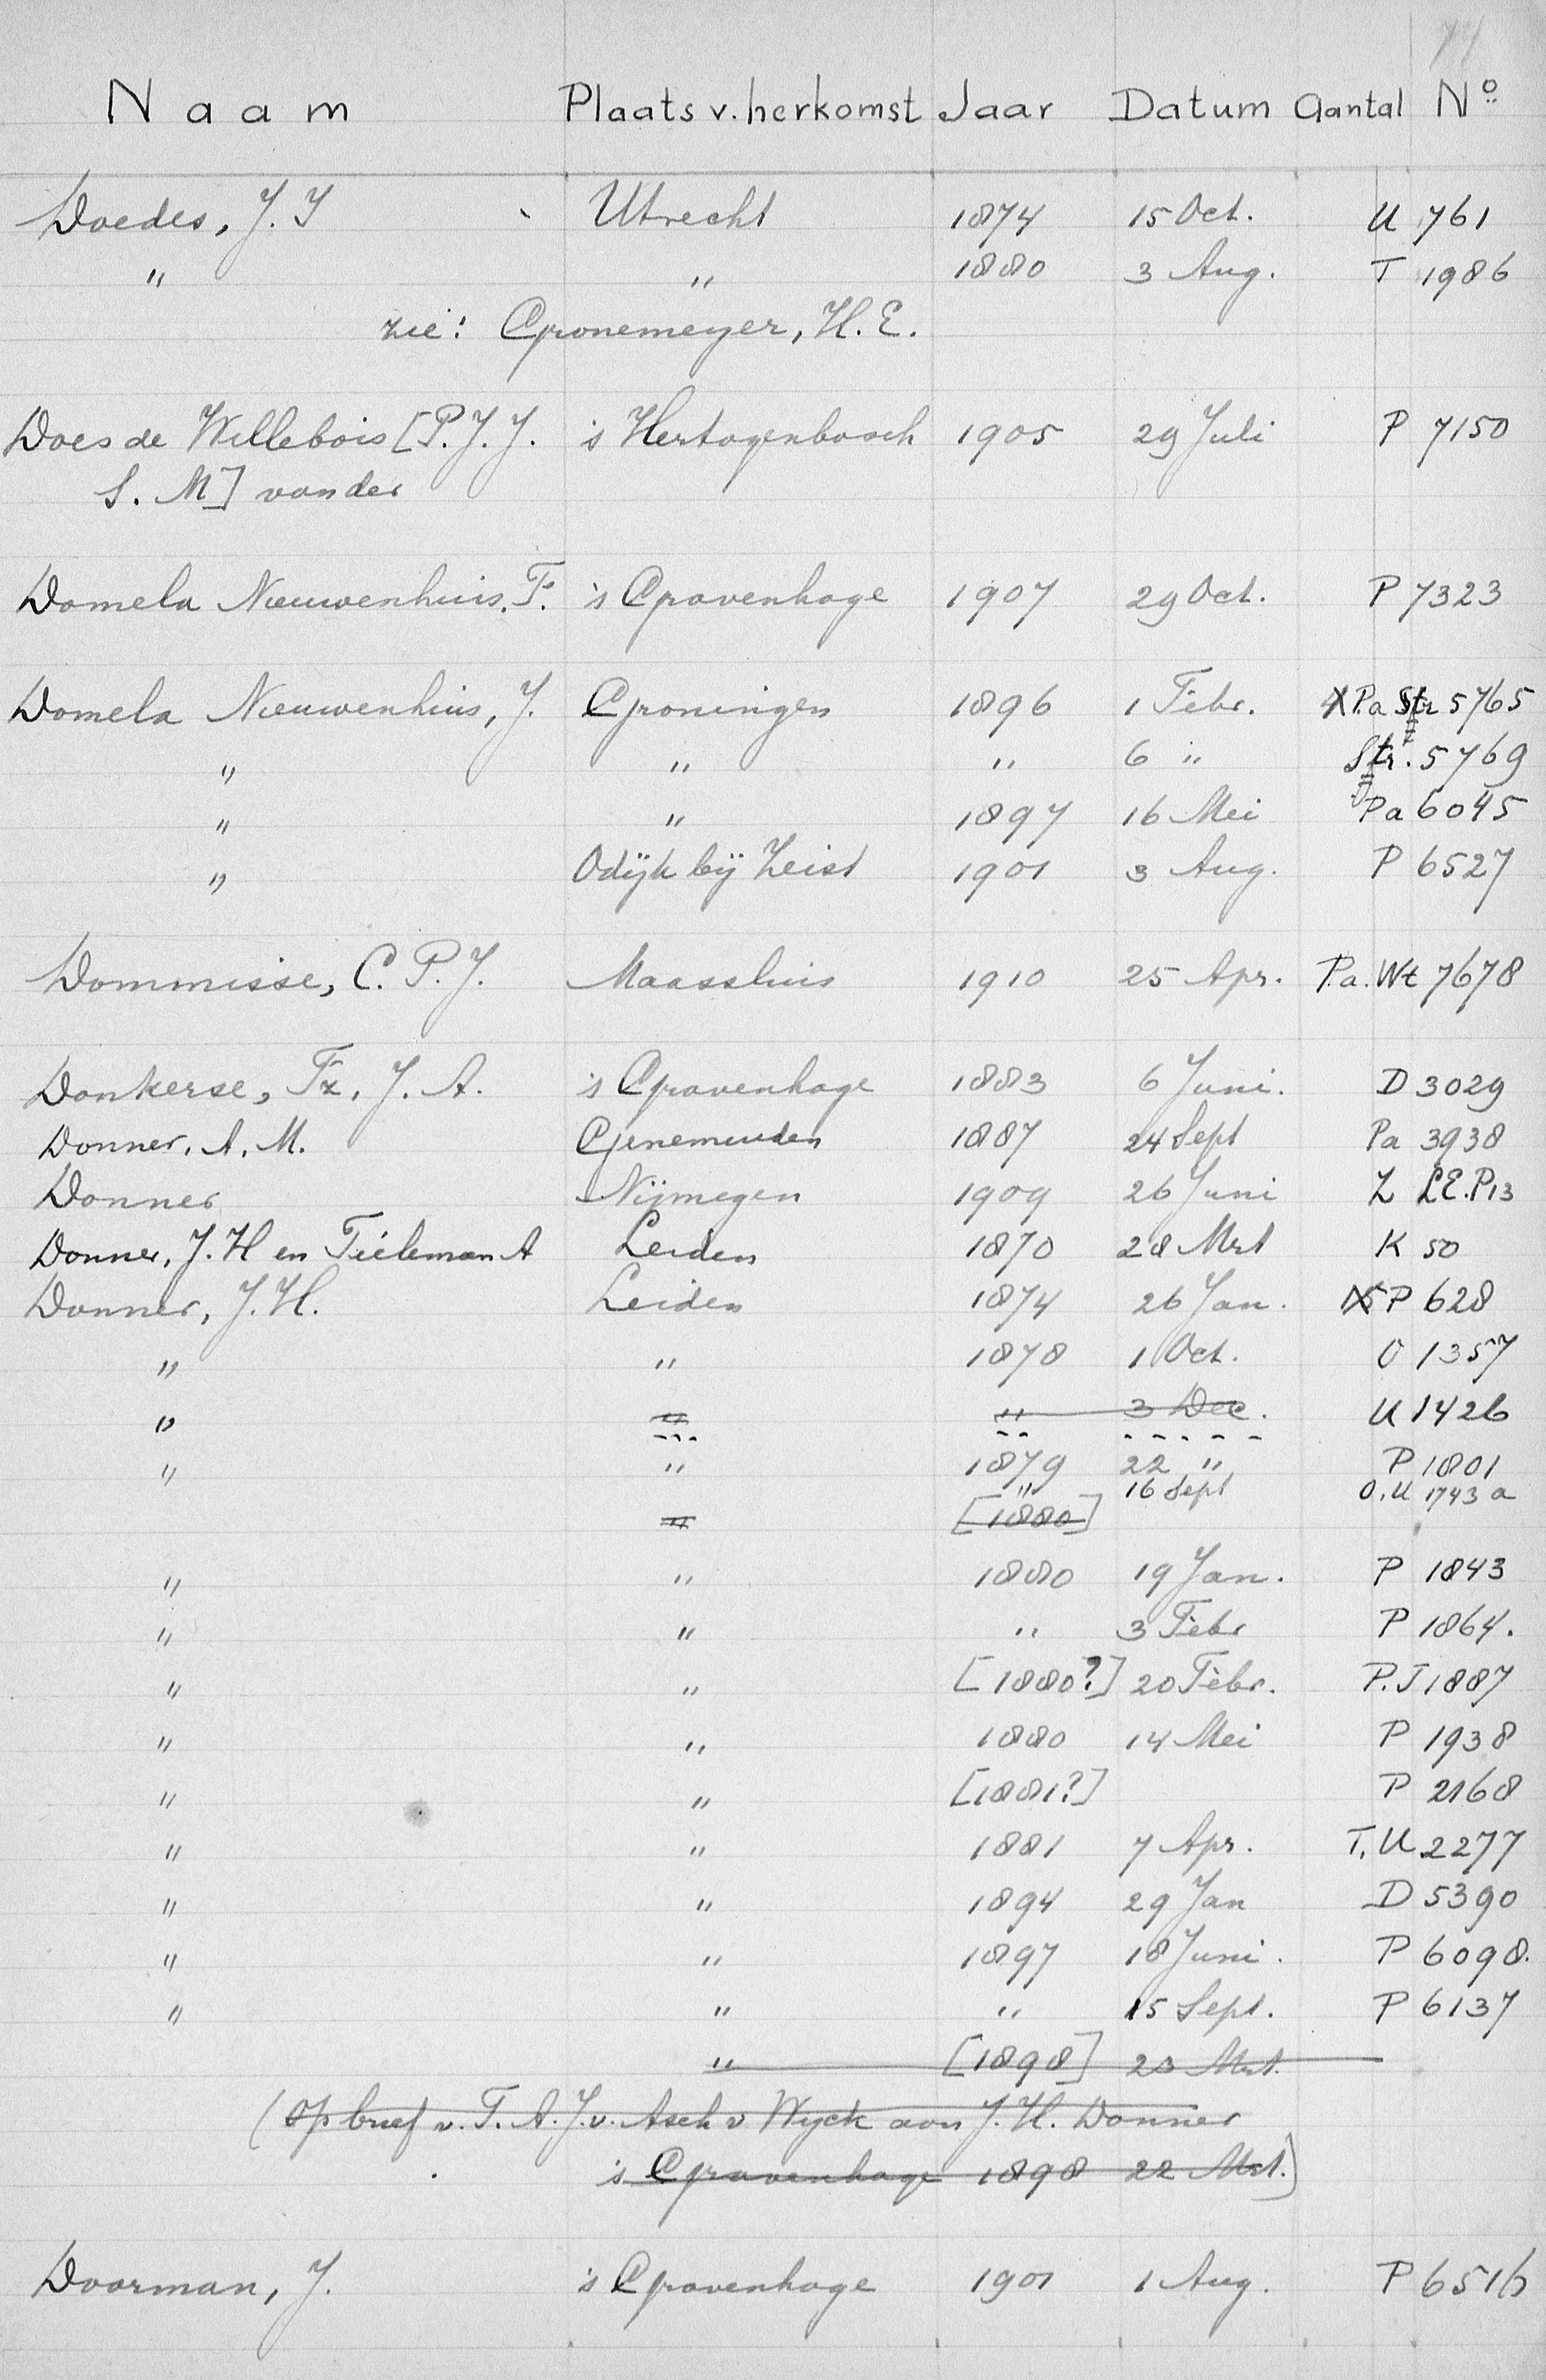 74
Naam Plaats v. herkomst Jaar Datum Aantal No
Doedes, J. I Utrecht 1874 15 Oct. U 761
" " 1880 3 Aug. T 1986
zie: Gronemeyer, H. E.
Does de Willebois [P. J. J. 's Hertogenbosch 1905 29 Juli P 7150
S. M] van der
Domela Nieuwenhuis. F. 's Gravenhage 1907 29 Oct. P 7323
Domela Nieuwenhuis, J. Groningen 1896 1 Febr. P.a Str 5765
" " " 6 " Str. 5769
" " 1897 16 Mei Pa 6045
" Odijk bij Zeist 1901 3 Aug. P 6527
Dommisse, C. P. J. Maassluis 1910 25 Apr. P.a. Wt 7678
Donkerse, Fz. J. A. 's Gravenhage 1883 6 Juni. D 3029
Donner, A. M. Genemuiden 1887 24 Sept Pa 3938
Donner Nijmegen 1909 26 Juni Z LE. P13
Donner, J. H en Tieleman A Leiden 1870 28 Mrt K 50
Donner, J. H. Leiden 1874 26 Jan. P 628
" " 1878 1 Oct. O 1357
" " " 3 Dec. U 1426
" " 1879 22 " P 1801
" 16 Sept O. U 1743 a
" [1880]
" " 1880 19 Jan. P 1843
" " " 3 Febr P 1864.
" " [1880?] 20 Febr. P. T 1887
" " 1880 14 Mei P 1938
" " [1881?] P 2168
" " 1881 7 Apr. T. U 2277
" " 1894 29 Jan D 5390
" " 1897 18 Juni. P 6098.
" " " 15 Sept. P 6137
" [1898] 23 Mrt.
(op brief v. T. A. J. v. Asch v Wyck aan J. H. Donner
's Gravenhage 1898 22 Mrt.)
Doorman, J. 's Gravenhage 1901 1 Aug. P 6516